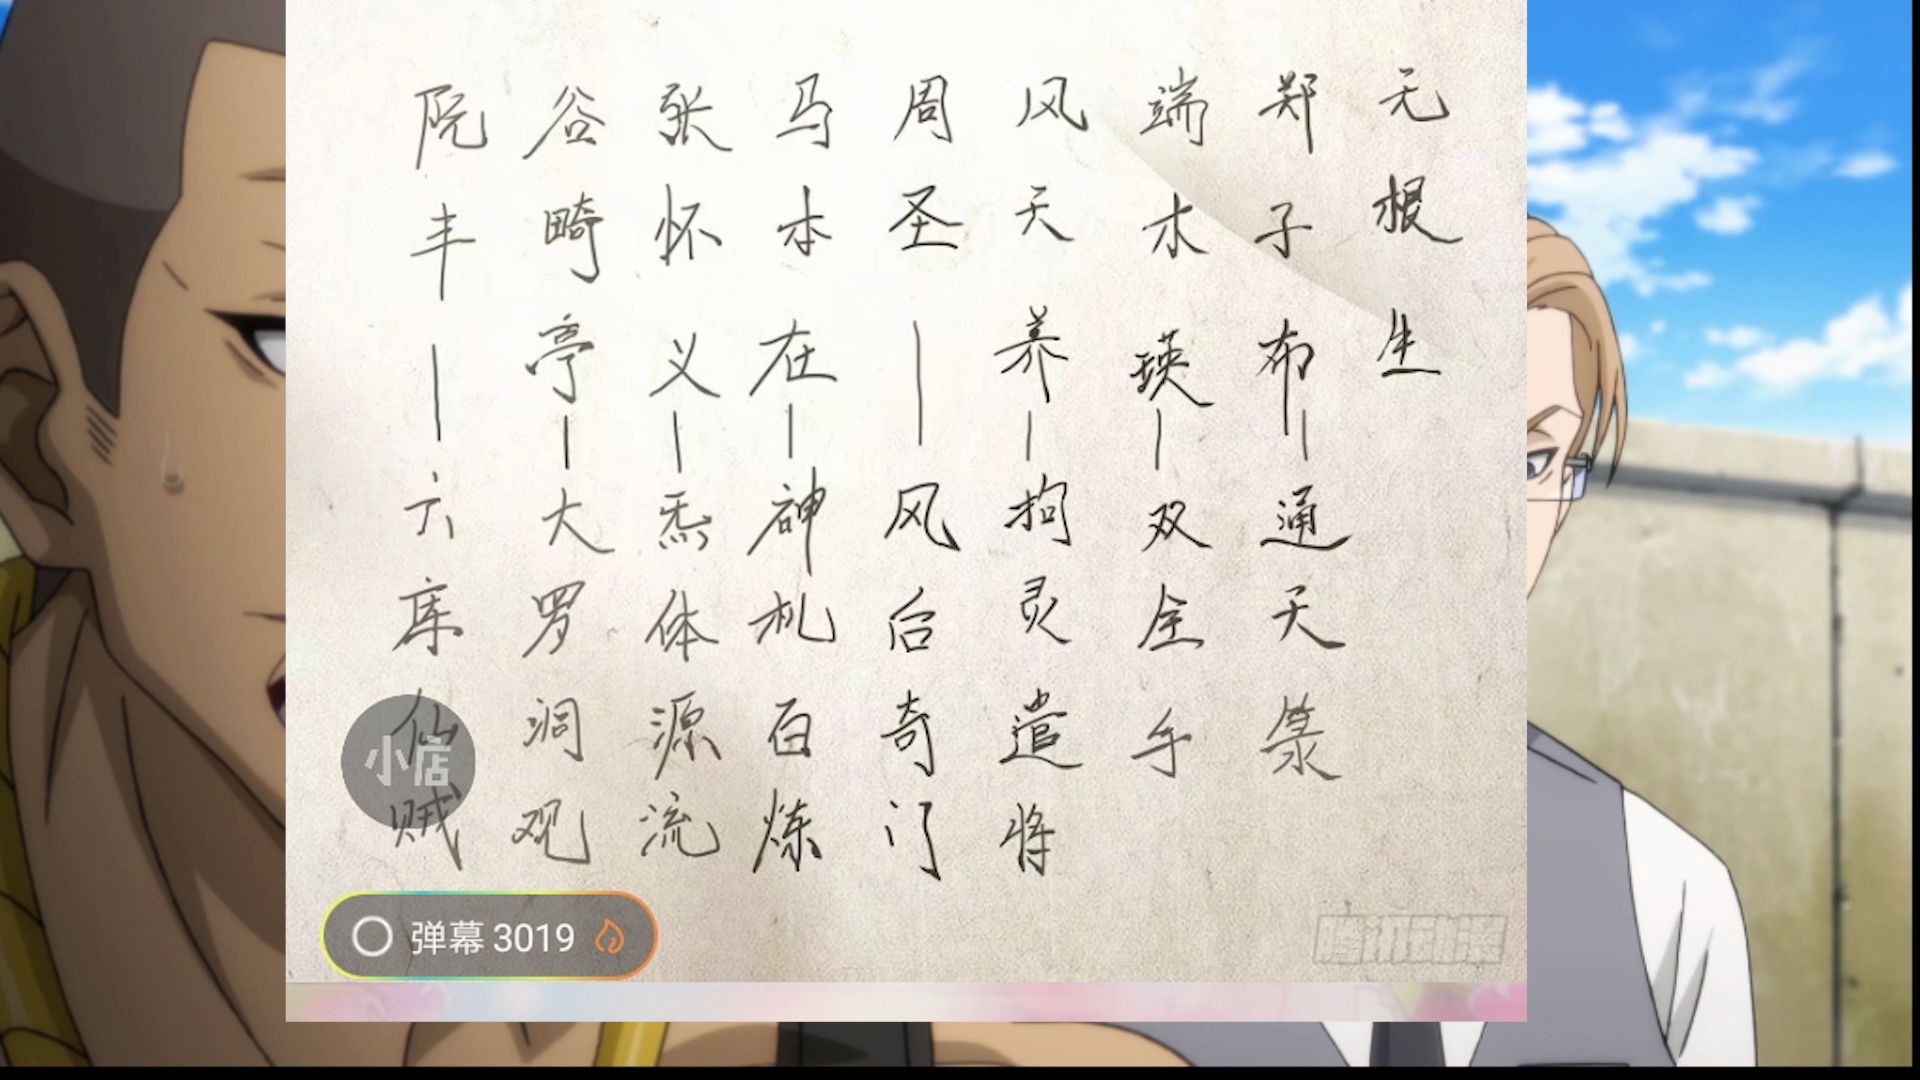 无根生
郑子布—通天箓
端木瑛—双全手
风天养—拘灵遣将
周圣—风后奇门
马本在—神机百炼
张怀义—炁体源流
谷畸亭—大罗洞观
阮丰—六库仙贼
小店
弹幕 3019
腾讯动漫